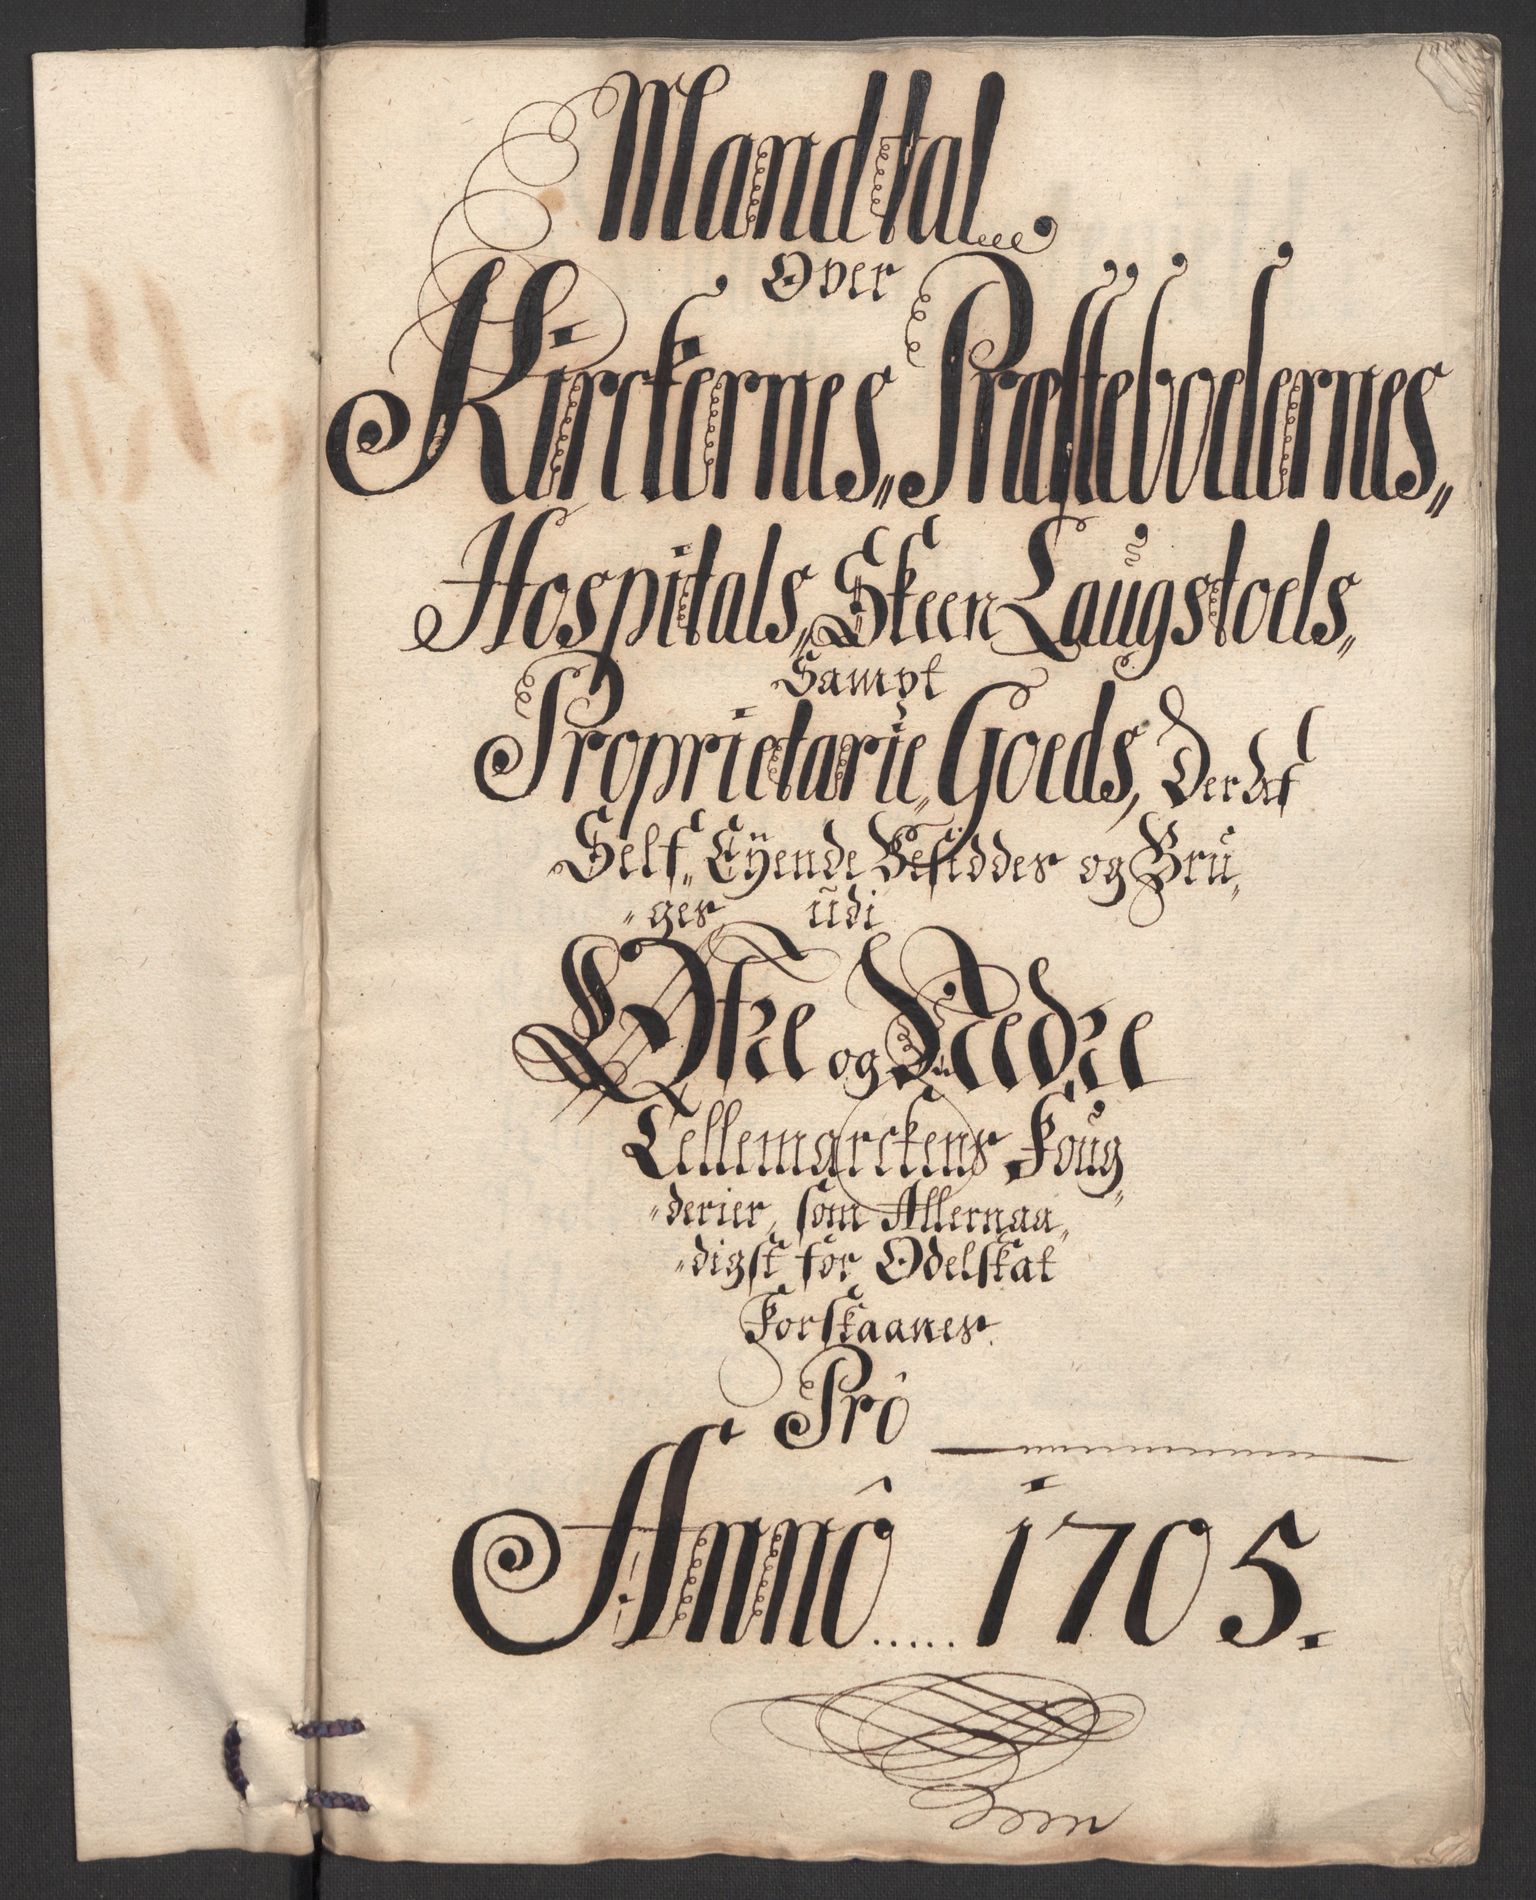 Mandtal
Over
Kirckernes„ Præstebodernes„
Hospitals„ Skeen Laugstoels„
Sampt
Proprietarie„ Goeds, Der Af
Self„ Eÿende Besiddes og Bru„
„ges udi
Øfre og Nedre
Tellemarckens Foug„
„derier, som Allernaa„
„digst for Odelskat
Forskaanes.
Prô
Annô ..... 1705.